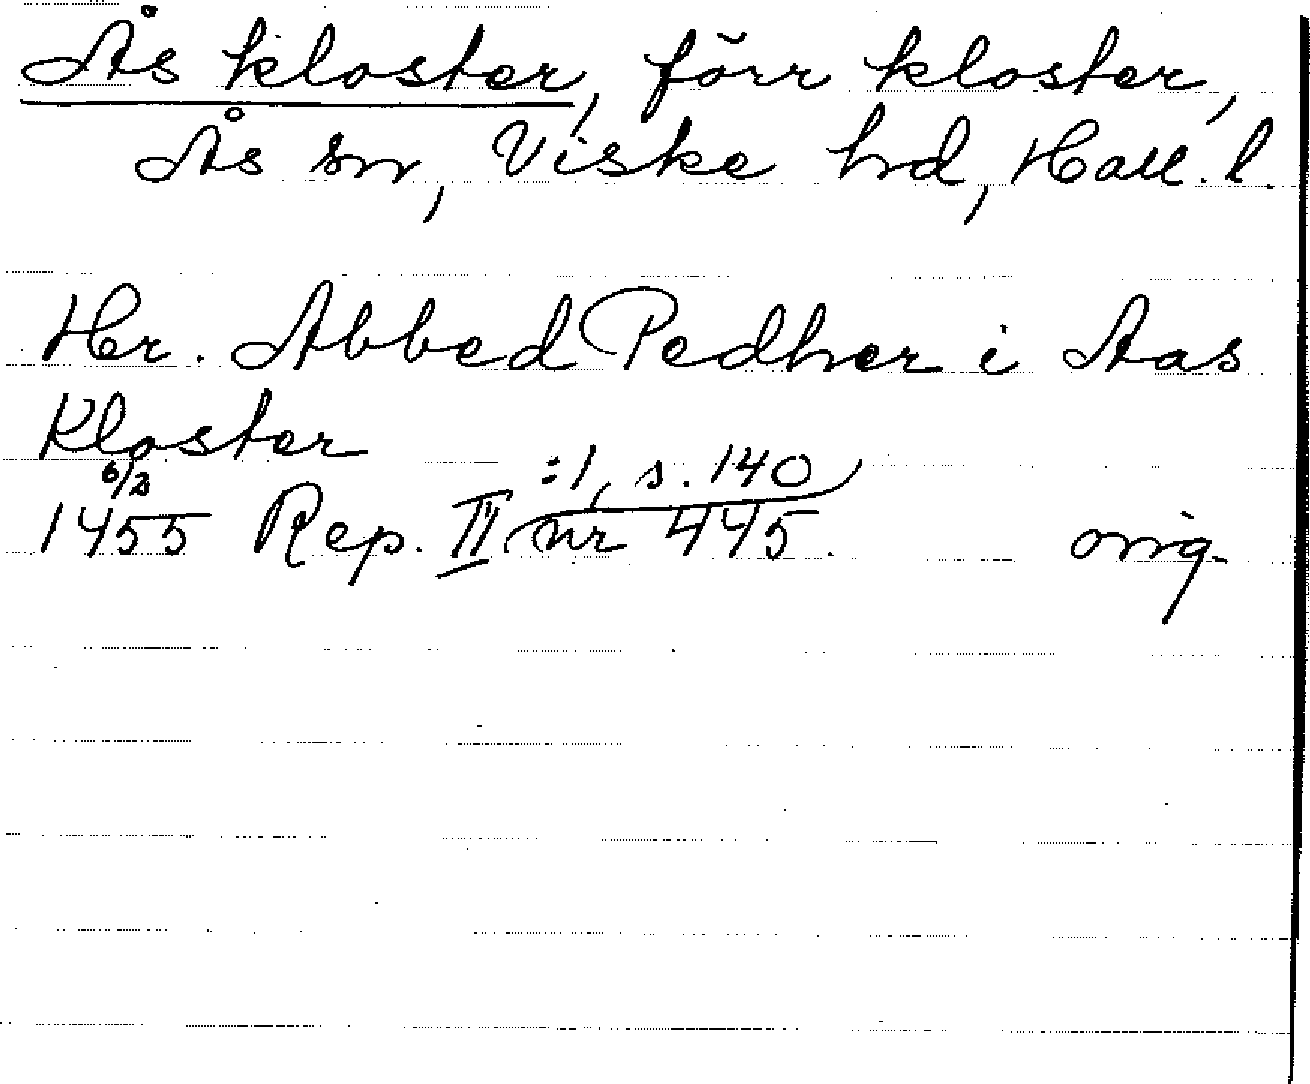 Ås kloster, förr kloster,
Ås sn, Viske hd, Hall. l.
Hr. Abbed Pedher i Aas
Kloster
6/2 :1, s. 140
1455 Rep. II nr 445. orig.